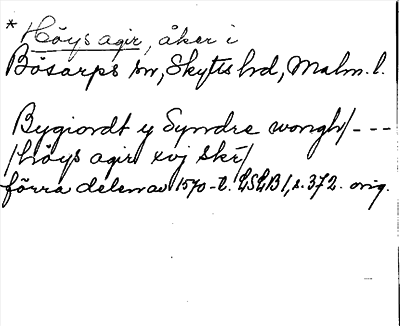 * Höys agir, åker i
Bösarps sn, Skytts hd, Malm. l.
Bygiordt y Syndre wongh/ - - -
/Höys agir xvj Ske/
förra delen av 1570-t. LSLB 1, s. 372. orig.